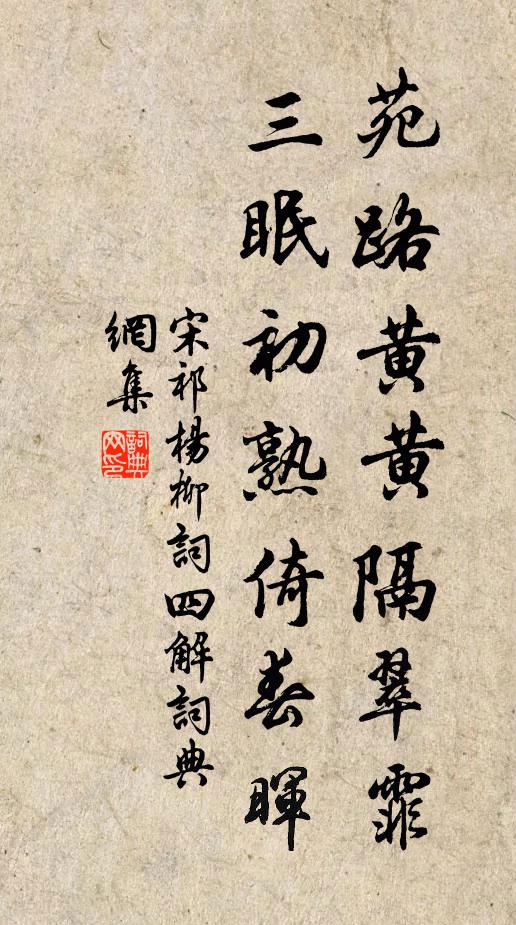 苑路黄黄隔翠霏
三眠初熟倚春暉
宋祁楊柳詞四解詞典
網集
詞典
网印